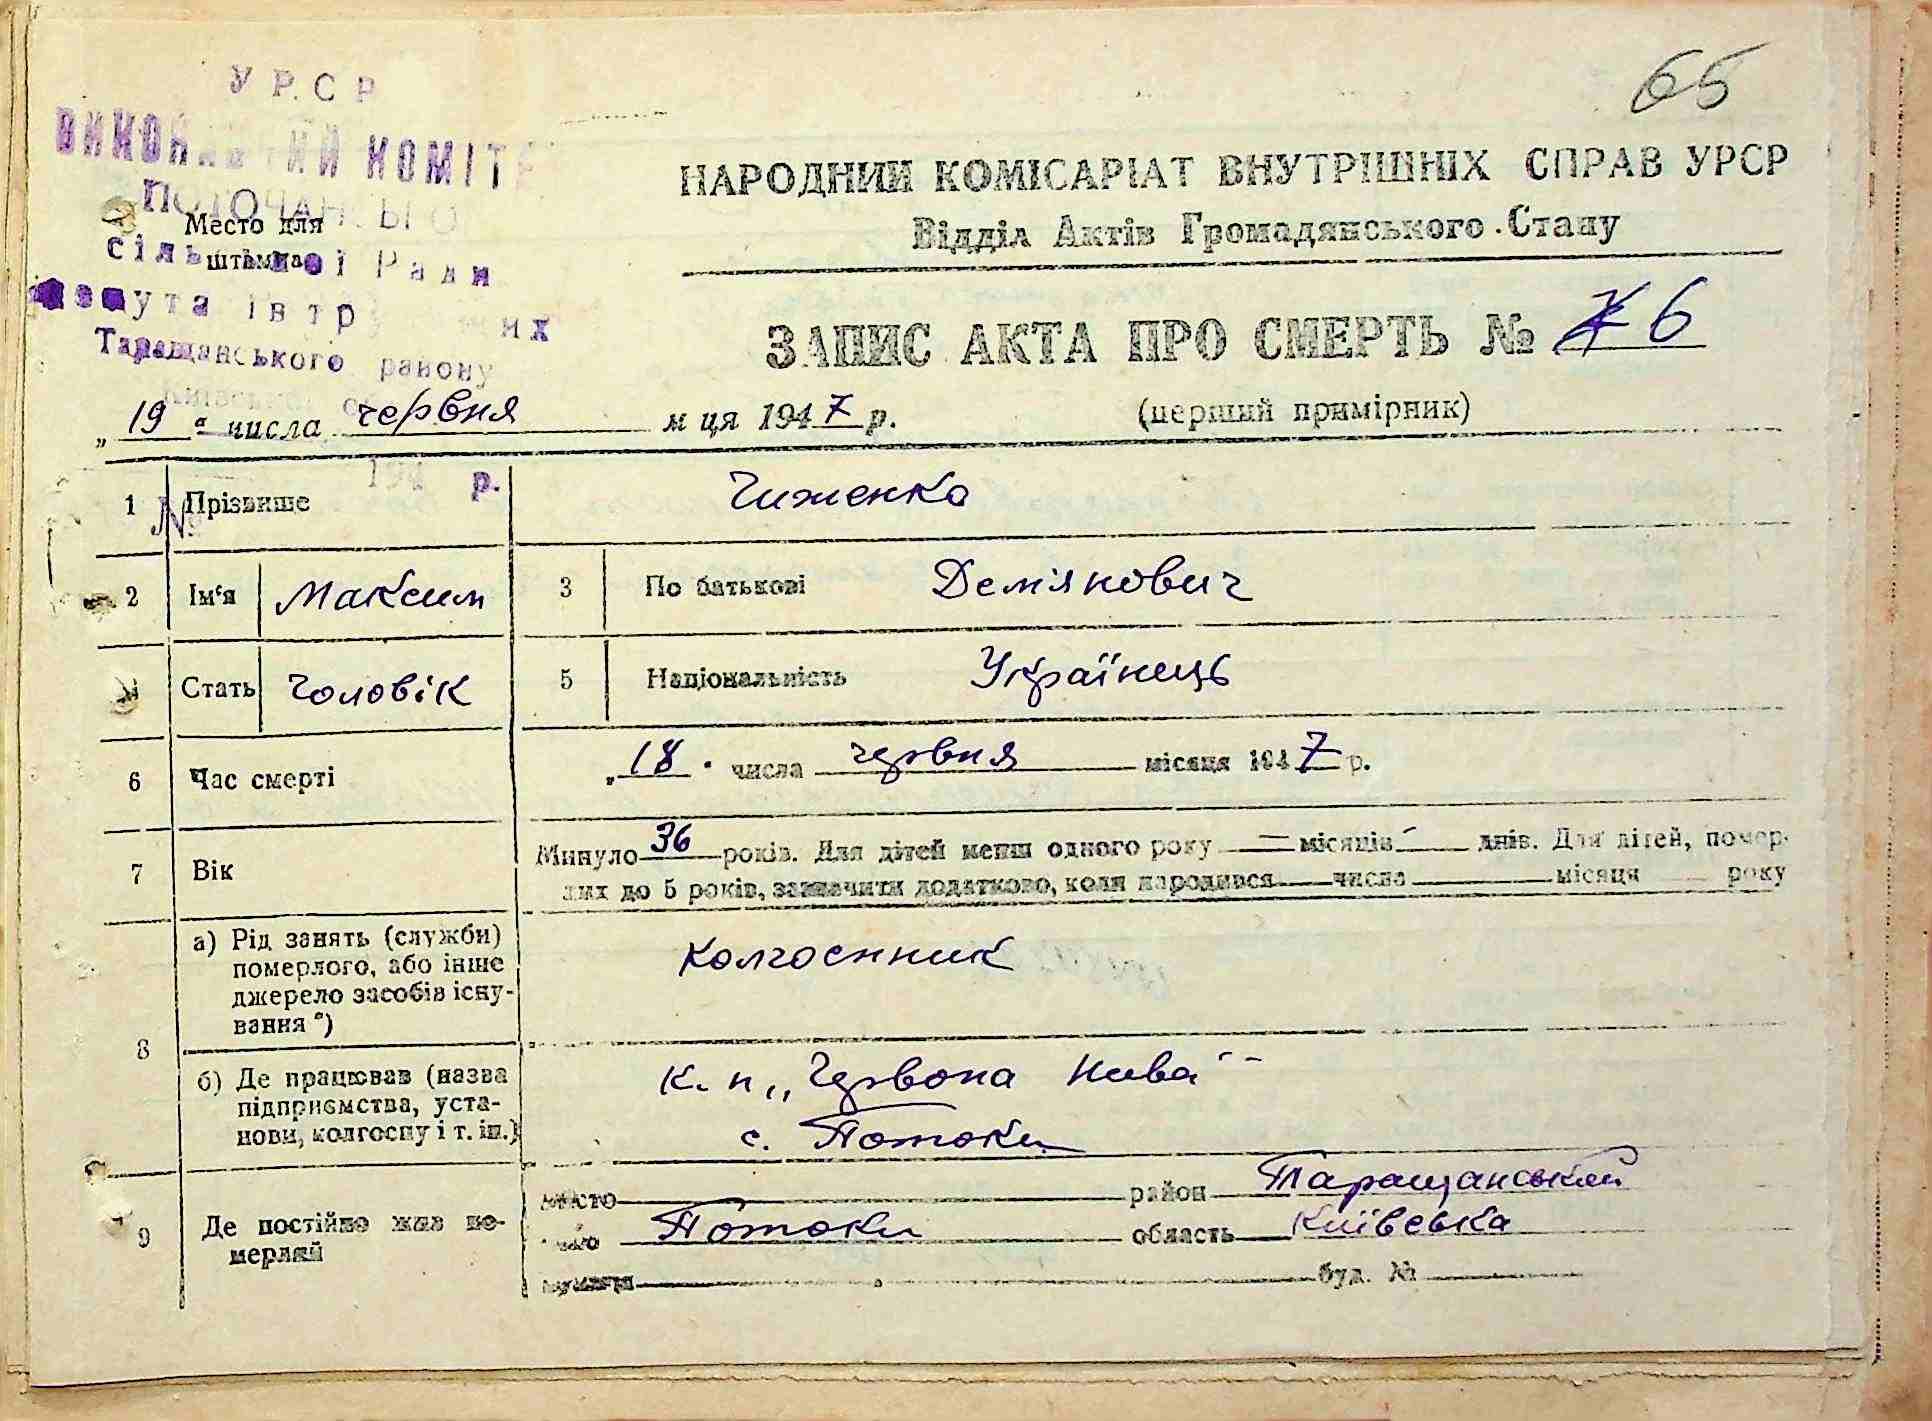 65
УРСР
ВИКОНАВЧИЙ КОМІТЕ
ПОТОЧАНСЬКОГО
Место для
штампа
сільської Ради
депутатів трудящих
Таращанського району
НАРОДНИЙ КОМІСАРІАТ ВНУТРІШНІХ СПРАВ УРСР
Відділ Актів Громадянського Стану
ЗАПИС АКТА ПРО СМЕРТЬ № 6
„19“ числа червня м ця 1947 р.
(перший примірник)
194 р.
№
1 Прізвище Чиженко
2 Ім‘я Максим 3 По батькові Дем'янович
4 Стать Чоловік 5 Національність Українець
6 Час смерті „18. числа червня місяця 1947 р.
7 Вік Минуло 36 років. Для дітей менш одного року — місяців - днів. Для дітей, помер-
лих до 5 років, зазначити додатково, коли народився числа місяця року
8 а) Рід занять (служби)
померлого, або інше
джерело засобів існу-
вання *)
Колгоспник
б) Де працював (назва
підприємства, уста-
нови, колгоспу і т. ін.)
к. п „Червона Нива"
с. Потоки
9 Де постійно жив по-
мерлий
місто район Таращанський
село Потоки область Київська
вулиця буд. №